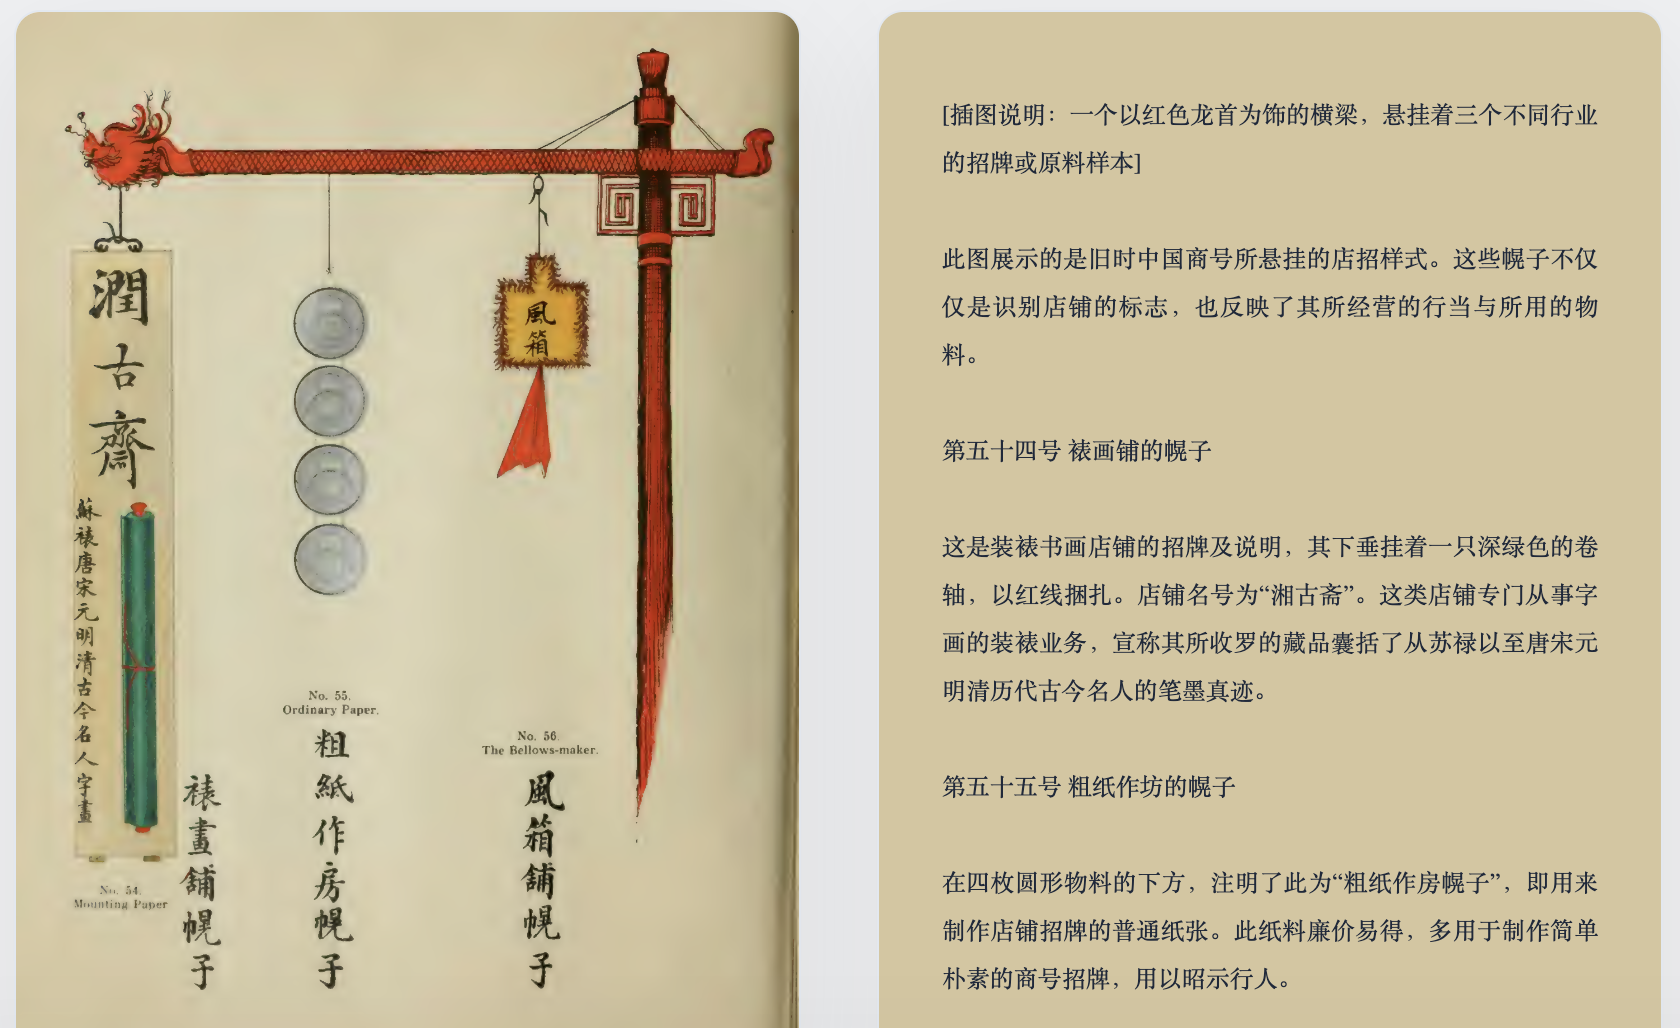 潤古齋
蘇裱唐宋元明清古今名人字畫
No. 54.
Mounting Paper
裱畫舖幌子
No. 55.
Ordinary Paper.
粗紙作房幌子
風箱
No. 56.
The Bellows-maker.
風箱舖幌子
[插图说明：一个以红色龙首为饰的横梁，悬挂着三个不同行业
的招牌或原料样本]
此图展示的是旧时中国商号所悬挂的店招样式。这些幌子不仅
仅是识别店铺的标志，也反映了其所经营的行当与所用的物
料。
第五十四号 裱画铺的幌子
这是装裱书画店铺的招牌及说明，其下垂挂着一只深绿色的卷
轴，以红线捆扎。店铺名号为“湘古斋”。这类店铺专门从事字
画的装裱业务，宣称其所收罗的藏品囊括了从苏禄以至唐宋元
明清历代古今名人的笔墨真迹。
第五十五号 粗纸作坊的幌子
在四枚圆形物料的下方，注明了此为“粗纸作房幌子”，即用来
制作店铺招牌的普通纸张。此纸料廉价易得，多用于制作简单
朴素的商号招牌，用以昭示行人。